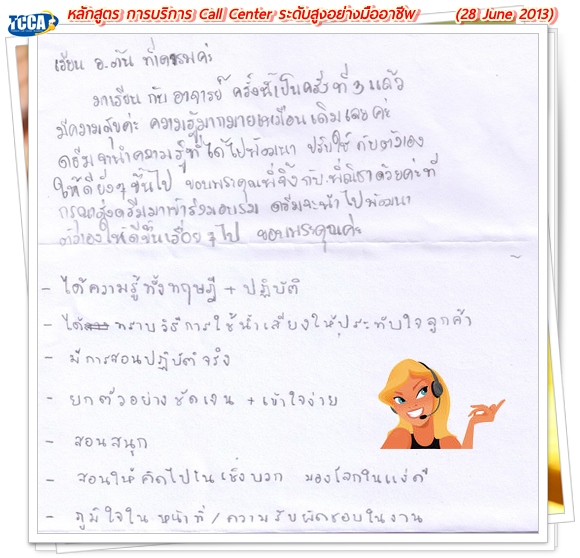 TCCA หลักสูตร การบริการ Call Center ระดับสูงอย่างมืออาชีพ (28 June 2013)
เรียน อ.ตัน ที่เคารพค่ะ
มาเรียน กับ อาจารย์ ครั้งนี้เป็นครั้งที่ 3 แล้ว
มีความสุขค่ะ ความรู้มากมายเหมือนเดิมเลยค่ะ
ดรีมจะนำความรู้ที่ได้ไปพัฒนา ปรับใช้ กับตัวเอง
ให้ดียิ่งๆ ขึ้นไป ขอบพระคุณพี่จิ๋งกับพี่ณิชาด้วยค่ะที่
กรุณาส่งดรีมมาเข้าร่วมอบรม ดรีมจะนำไปพัฒนา
ตัวเองให้ดีขึ้นเรื่อยๆไป ขอบพระคุณค่ะ
- ได้ความรู้ทั้งทฤษฎี + ปฏิบัติ
- ได้ ทราบวิธีการใช้น้ำเสียงให้ประทับใจลูกค้า
- มีการสอนปฏิบัติจริง
- ยกตัวอย่างชัดเจน + เข้าใจง่าย
- สอนสนุก
- สอนให้คิดไปในเชิงบวก มองโลกในแง่ดี
- ภูมิใจในหน้าที่/ความรับผิดชอบในงาน